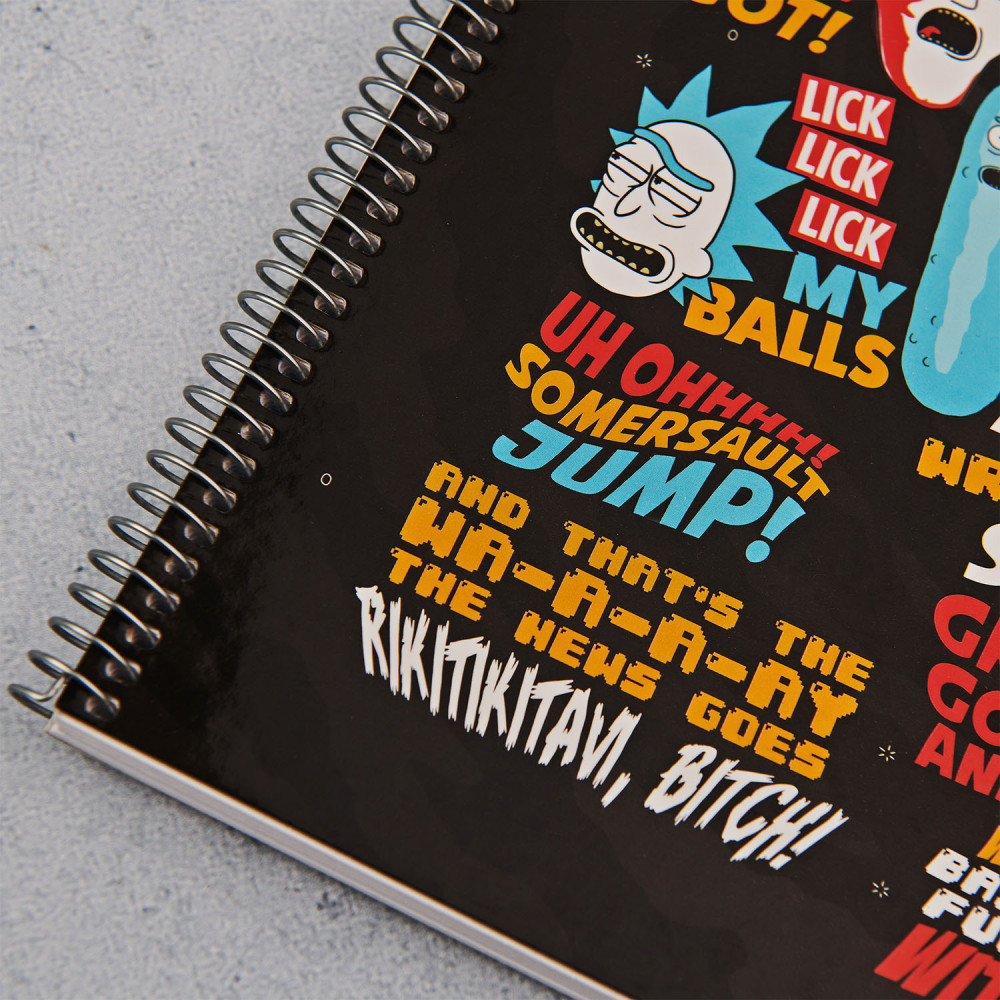 OT!
LICK
LICK
LICK
MY
BALLS
UH OHHHHH!
SOMERSAULT
JUMP!
AND THAT'S THE
WA-A-A-AY
THE NEWS GOES
RIKITIKITAVI, BITCH!